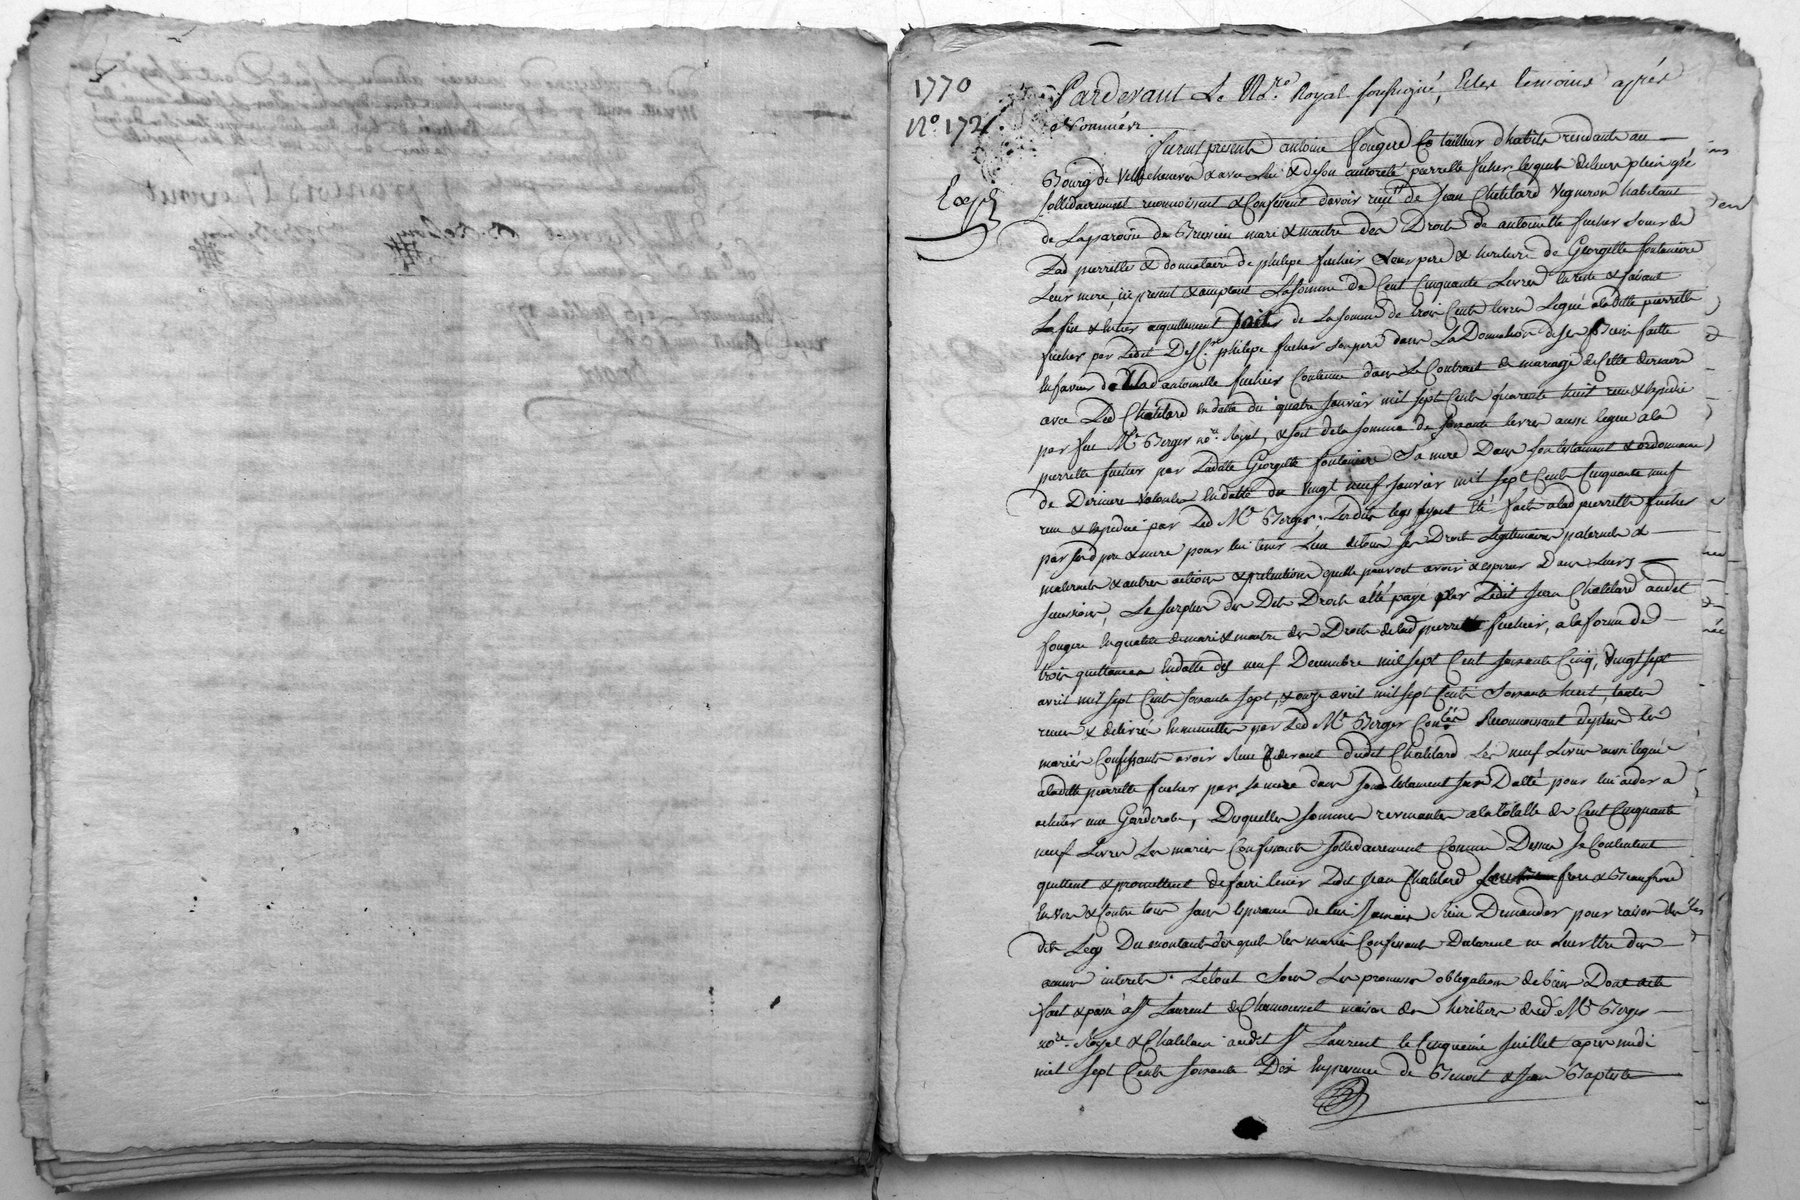 1770
N.° 172
Pardevant Le No.re Royal soussigné, Et les temoins après
Nommés
Exp.é
Furent presents antoine fougere tailleur d'habits residants au
Bourg de Villechenève & avec lui & de son autorité pierrette fucher lesquels de leurs plein gré
sollidairement reconnoissent & Confessent d'avoir reçu de Jean Chatelard Vigneron habitant
de La paroisse de Brussieu mari & maitre des Droits de antoinette fucher soeur de
Lad pierrette & donnataire de philipe fucher leur pere & heritiere de Georgette fontaniere
Leur mere ici present & acceptant La somme de Cent Cinquante Livres du reste & faisant
La fin & entier aquittement de La somme de trois Cents livres Legué a laditte pierrette
fucher par Ledit philipe fucher son pere dans La Donnation de ses Biens faitte
En faveur de Lad antoinette fucher Contenue dans Le Contrat de mariage de Cette derniere
avec Led Chatelard En datte du quatre Janvier mil sept Cents quarante huit reçu & expedié
par feu M.e Berger no.re Royal, & soit de la somme de soixante livres aussi legué a la
pierrette fucher par Laditte Georgette fontaniere Sa mere Dans son testament & ordonnance
de Derniere volonté En datte du Vingt neuf Janvier mil sept Cents Cinquante neuf
reçu & expedié par Led M.e Berger, Lesdits legs ayant été faits a lad pierrette fucher
par sesd pere & mere pour lui tenir Lieu de tous ses Droits Legitimaires paternels &
maternels & autres actions & pretentions quelle pouvoit avoir & esperer Dans Leurs
successions, Le surplus des Dits Droits a été payé par Ledit Jean Chatelard audit
fougere En qualité de mari & maitre des Droits de lad pierrette fucher, a la forme de
trois quittances En datte des neuf Decembre mil sept Cent soixante Cinq, Vingt sept
avril mil sept Cents soixante sept, & onze avril mil sept Cents Soixante huit, toutes
reçues & delivrés En minuttes par Led M.e Berger Reconnoissant de plus les
mariés Confessants avoir Reçu Cy devant dudit Chatelard les neuf Livres aussi legués
a laditte pierrette fucher par sa mere dans son testament sus Datté pour lui aider a
acheter une Garderobe, Desquelles sommes revenantes a la totalle de Cent Cinquante
neuf Livres Les mariés Confessants sollidairement Comme Dessus se Contentent
quittent & promettent de faire tenir Ledit Jean Chatelard frere & Beaufrere
Envers & Contre tous sans esperance de lui Jamais Rien Demander pour raison des
dits Legs Du montant des quels les mariés Confessants
interets. Le tout Sous Les promesses obligations de biens Dont acte
fait & passé à S.t Laurent de Chamousset maison des heritiers dud M.e Berger
no.re Royal & Chatelain audit S.t Laurent le Cinquieme Juillet apres midi
mil sept Cents soixante Dix En presence de Benoit & Jean Baptiste